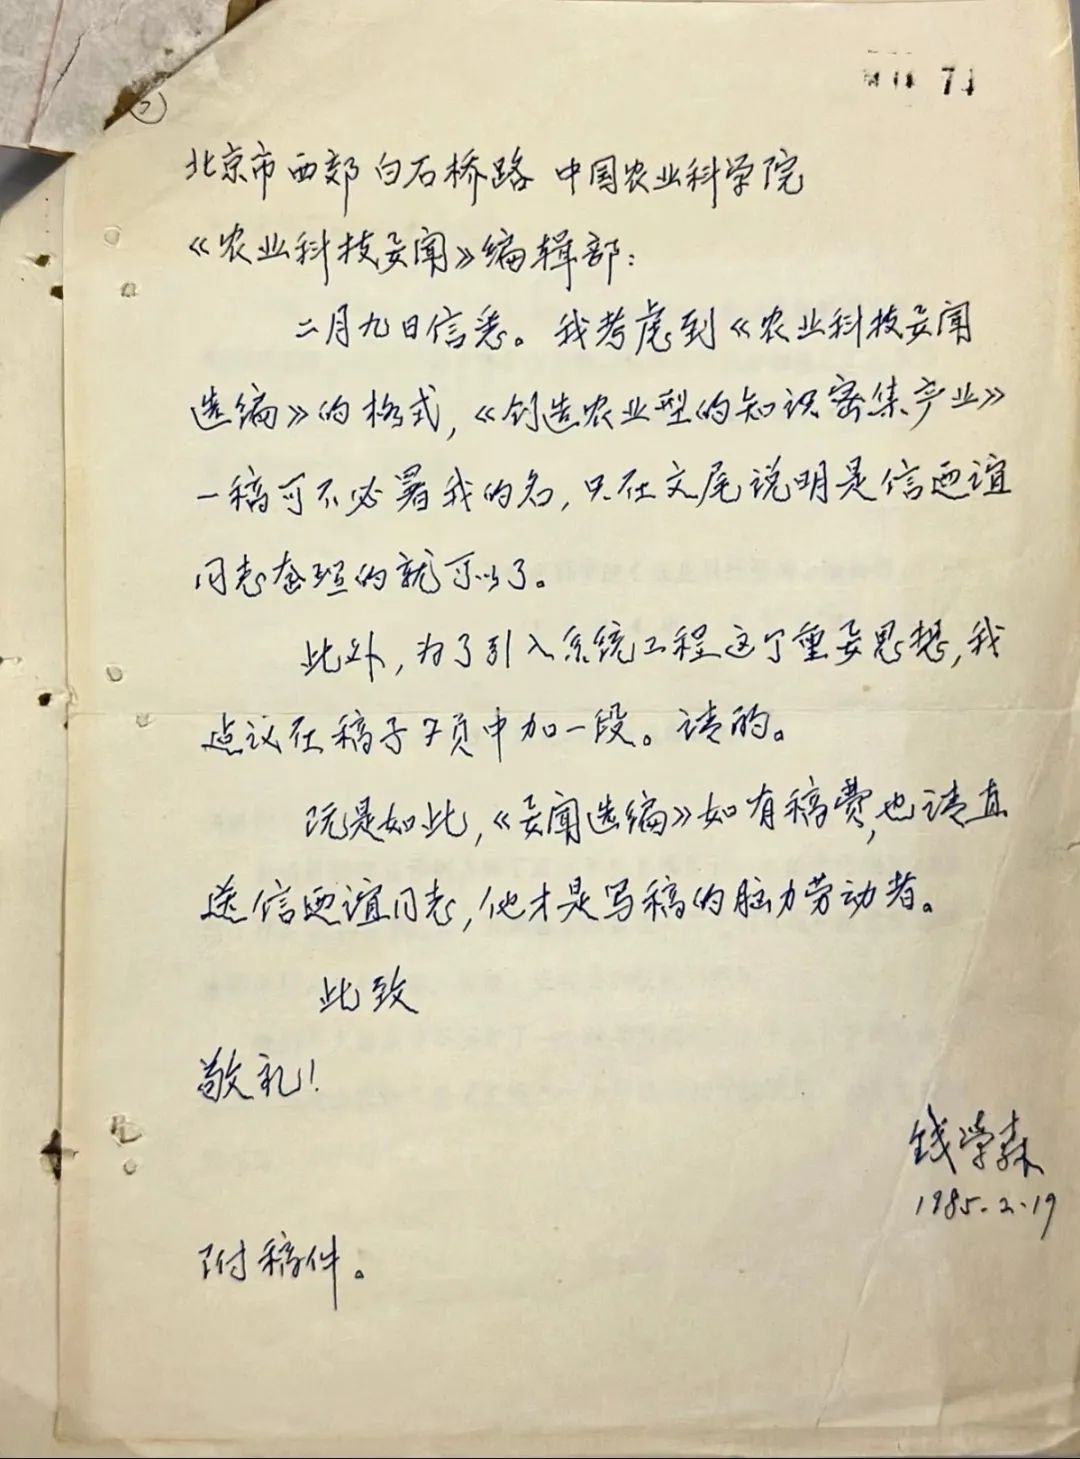 74
2
北京市西郊白石桥路 中国农业科学院
《农业科技要闻》编辑部：
二月九日信悉。我考虑到《农业科技要闻
选编》的格式，《创造农业型的知识密集产业》
一稿可不必署我的名，只在文尾说明是信迺谊
同志整理的就可以了。
此外，为了引入系统工程这个重要思想，我
建议在稿子7页中加一段。请酌。
既是如此，《要闻选编》如有稿费，也请直
送信迺谊同志，他才是写稿的脑力劳动者。
此致
敬礼！
钱学森
1985.2.19
附稿件。